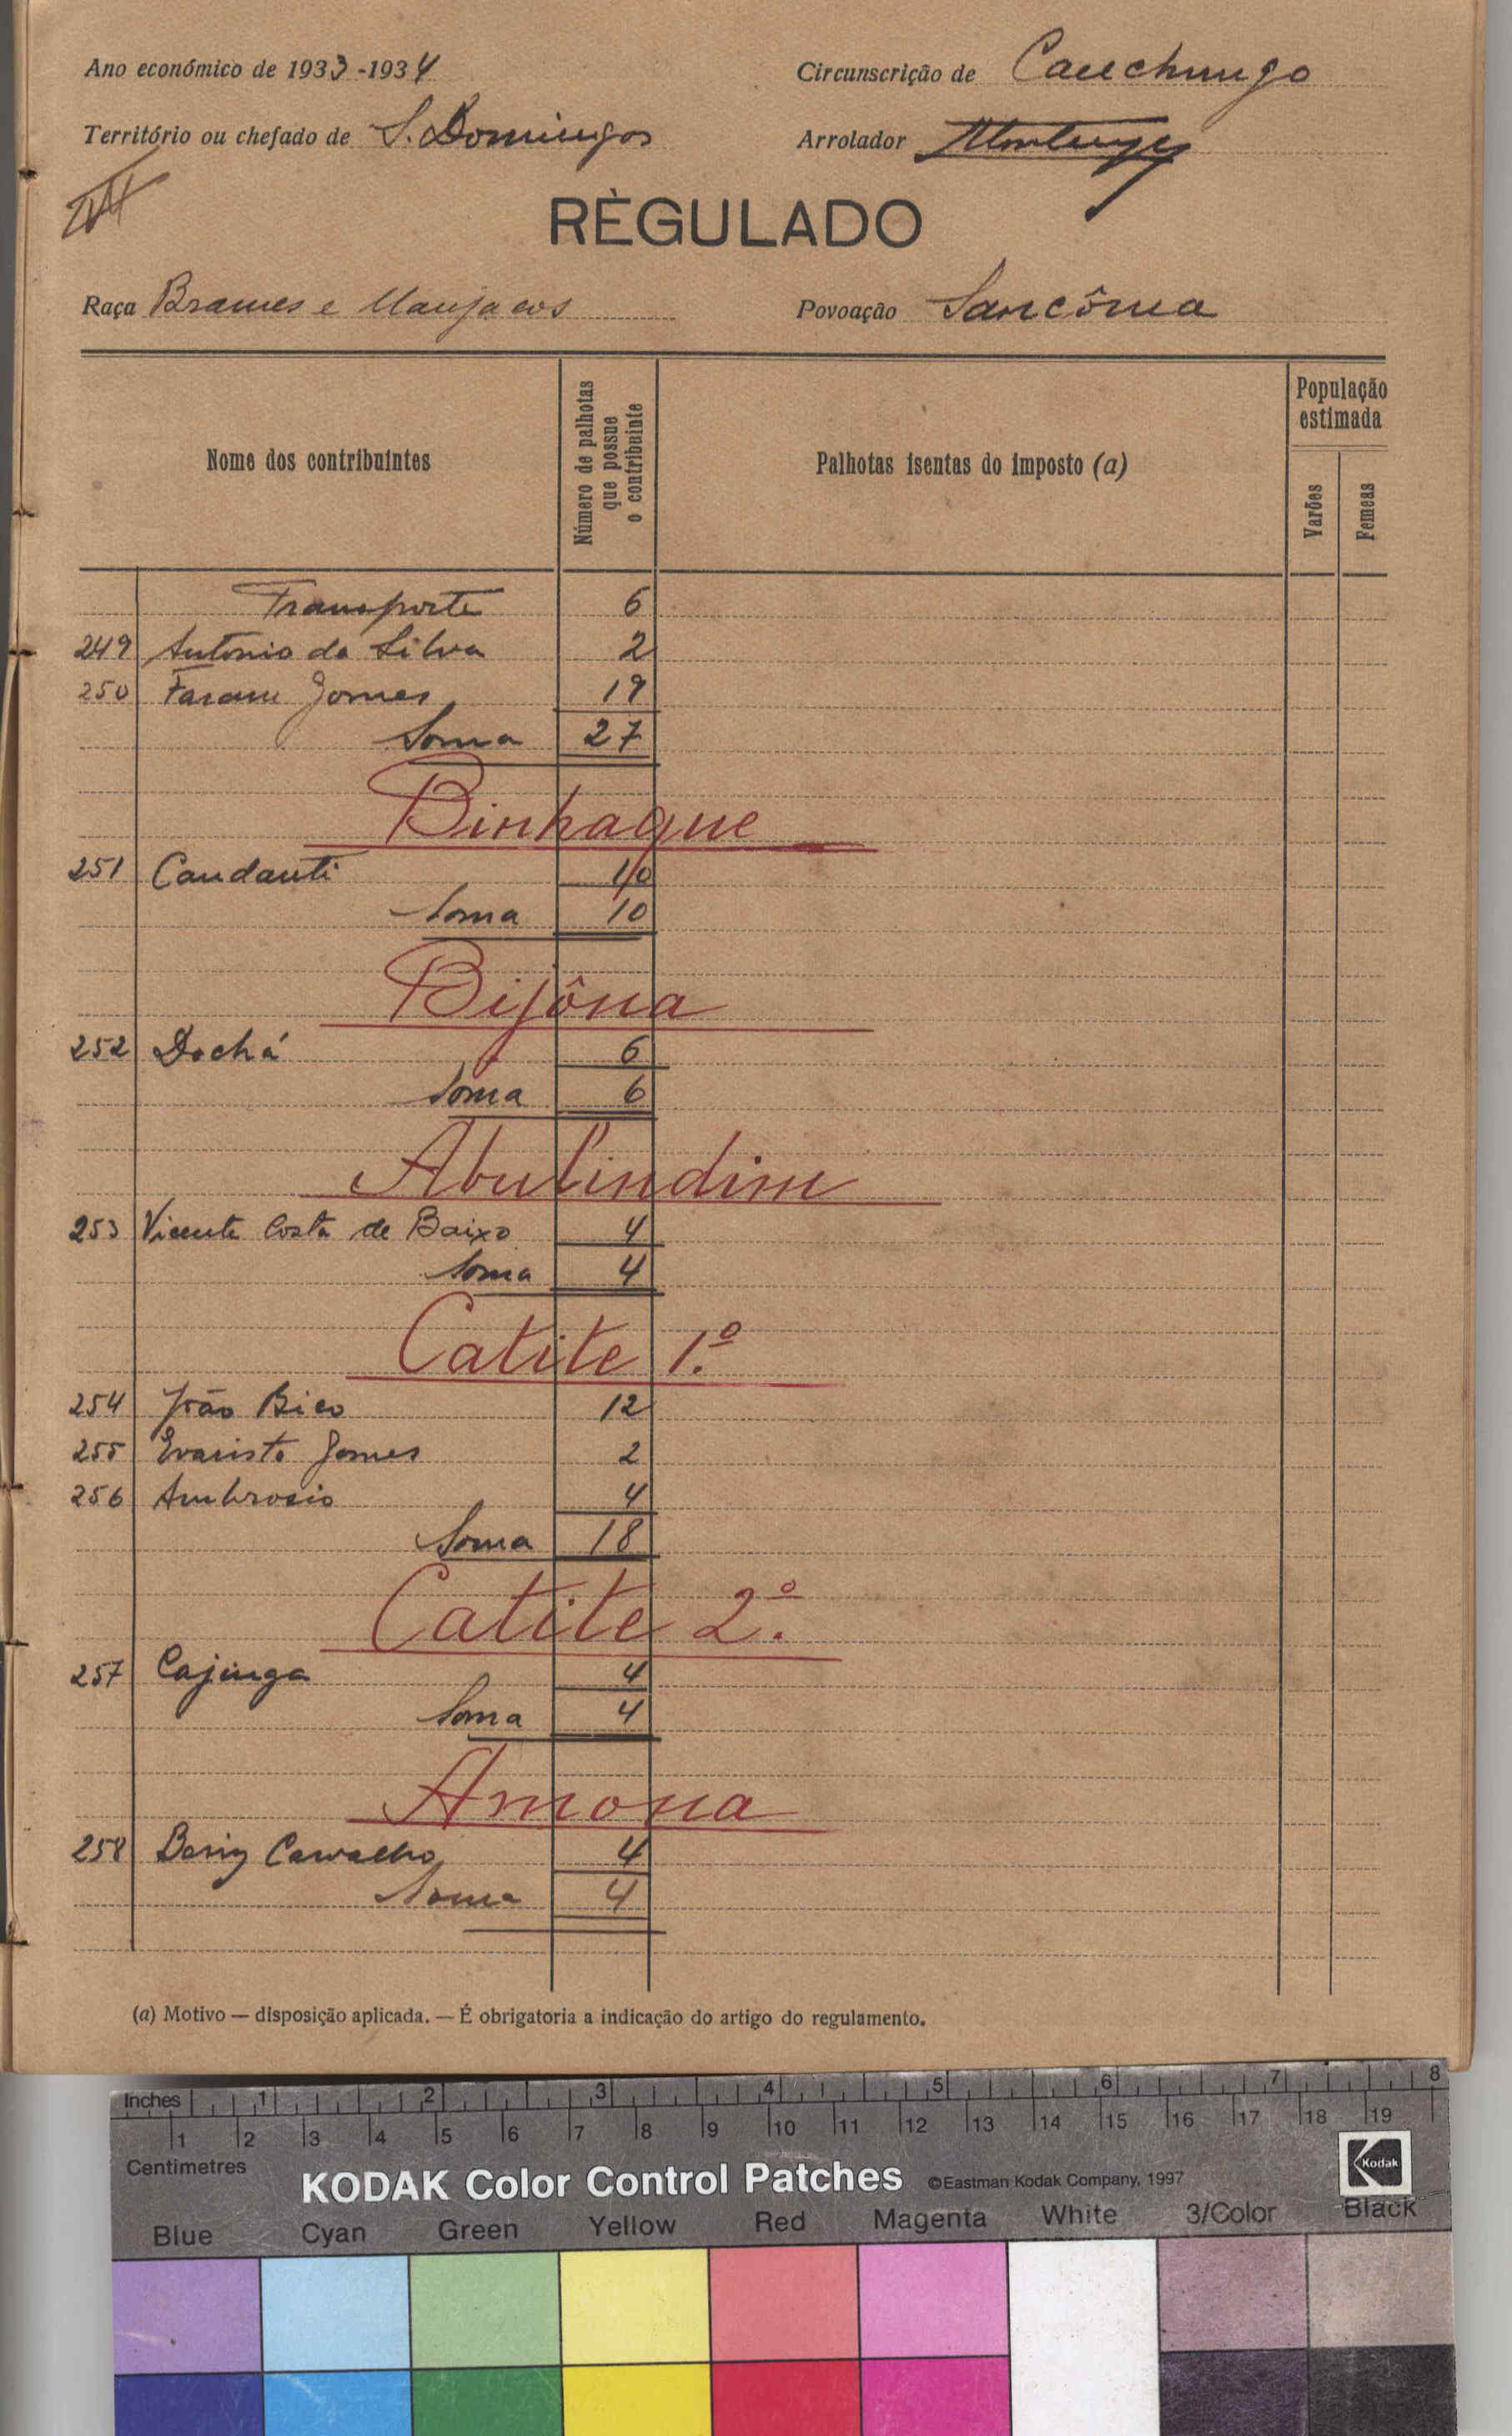 Ano económico de 1933-1934
Circunscrição de Cauchungo
Território ou chefado de S. Domingos
Arrolador
RÈGULADO
Raça Brames e Manjacos
Povoação Sancôma
Nome dos contribuintes
Número de palhotas que possue o contribuinte
Palhotas isentas do imposto (a)
População estimada
Varões
Femeas
Transporte 6
249 Antonio da Silva 2
250 Faram Gomes 19
Soma 27
Binhaque
251 Caudauti 10
Soma 10
Bijôna
252 Dochá 6
Soma 6
Abulindim
253 Vicente Costa de Baixo 4
Soma 4
Catite 1.º
254 João Bico 12
255 Evaristo Gomes 2
256 Ambrosio 4
Soma 18
Catite 2.º
257 Cajinga 4
Soma 4
Amona
258 Carvalho 4
Soma 4
(a) Motivo — disposição aplicada. — É obrigatoria a indicação do artigo do regulamento.
Inches 1 2 3 4 5 6 7 8
1 2 3 4 5 6 7 8 9 10 11 12 13 14 15 16 17 18 19
Centimetres
KODAK Color Control Patches ©Eastman Kodak Company, 1997 Kodak
Blue Cyan Green Yellow Red Magenta White 3/Color Black